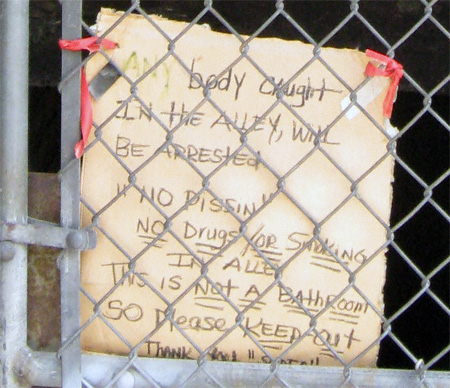 ANY body CAught
IN the ALLEY, WILL
BE ARRESTED
"NO DISSIN"
NO Drugs/OR SMOKING
IN ALLEY
THIS is NOT A BathRoom
SO Please KEEP Out
THANK you!